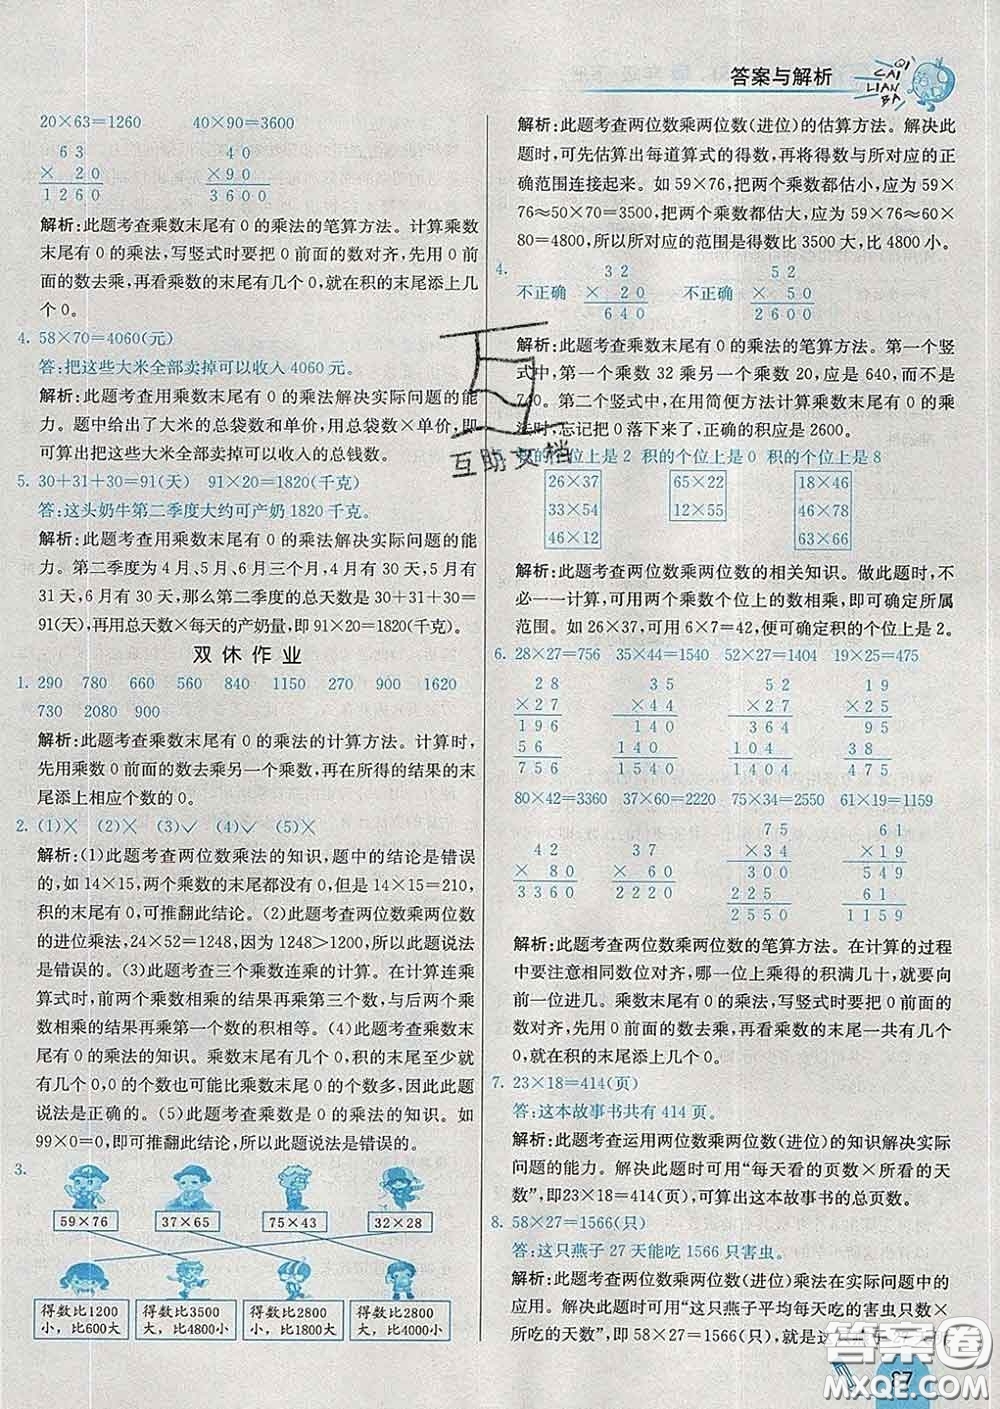 答案与解析
QI
CAI
LIAN
BA
20×63=1260 40×90=3600
6 3
× 2 0
1 2 6 0
4 0
× 9 0
3 6 0 0
解析:此题考查乘数末尾有 0 的乘法的笔算方法。计算乘数
末尾有 0 的乘法,写竖式时要把 0 前面的数对齐,先用 0 前
面的数去乘,再看乘数的末尾有几个 0,就在积的末尾添上几
个 0。
4. 58×70=4060(元)
答:把这些大米全部卖掉可以收入 4060 元。
解析:此题考查用乘数末尾有 0 的乘法解决实际问题的能
力。题中给出了大米的总袋数和单价,用总袋数×单价,即
可算出把这些大米全部卖掉可以收入的总钱数。
5. 30+31+30=91(天) 91×20=1820(千克)
答:这头奶牛第二季度大约可产奶 1820 千克。
解析:此题考查用乘数末尾有 0 的乘法解决实际问题的能
力。第二季度为 4 月、5 月、6 月三个月,4 月有 30 天,5 月有
31 天,6 月有 30 天,那么第二季度的总天数是 30+31+30=
91(天),再用总天数×每天的产奶量,即 91×20=1820(千克)。
双休作业
1. 290 780 660 560 840 1150 270 900 1620
730 2080 900
解析:此题考查乘数末尾有 0 的乘法的计算方法。计算时,
先用乘数 0 前面的数去乘另一个乘数,再在所得的结果的末
尾添上相应个数的 0。
2. (1)× (2)× (3)✓ (4)✓ (5)×
解析:(1)此题考查两位数乘法的知识,题中的结论是错误
的,如 14×15,两个乘数的末尾都没有 0,但是 14×15=210,
可推翻此结论。(2)此题考查两位数乘两位数
的进位乘法,24×52=1248,因为 1248>1200,所以此题说法
是错误的。(3)此题考查三个乘数连乘的计算。在计算连乘
算式时,前两个数相乘的结果再乘第三个数,与后两个乘
数相乘的结果再乘第一个数的积相等。(4)此题考查乘数末
尾有 0 的乘法的知识。乘数末尾有几个 0,积的末尾至少就
有几个 0,0 的个数可能比乘数末尾 0 的个数多,因此此题
说法是正确的。(5)此题考查乘数是 0 的乘法的知识。如
99×0=0,即可推翻此结论,所以此题说法是错误的。
3.
59×76 37×65 75×43 32×28
得数比1200小，比600大
得数比3500大，比4800小
得数比2800小，比600大
得数比2800大，比4000小
解析:此题考查两位数乘两位数(进位)的估算方法。解决此
题时,可先估算出每道算式的得数,再将得数与所对应的正
确范围连接起来。如 59×76,把两个乘数都估小,应为 59×
76≈50×70=3500,把两个乘数都估大,应为 59×76≈60×
80=4800,所以所对应的范围是得数比 3500 大,比 4800 小。
4.
不正确
3 2
× 2 0
6 4 0
不正确
5 2
× 5 0
2 6 0 0
解析:此题考查乘数末尾有 0 的乘法的笔算方法。第一个竖
式中,第一个乘数 32 乘另一个乘数 20,应是 640,而不是
740。第二个竖式中,在用简便方法计算乘数末尾有 0 的乘
法时,忘记把 0 落下来了,正确的积应是 2600。
积的个位上是 2 积的个位上是 0 积的个位上是 8
26×37 65×22 18×46
33×54 12×55 46×78
46×12 63×66
解析:此题考查两位数乘两位数的相关知识。做此题时,不
必一一计算,可用两个乘数个位上的数相乘,即可确定所属
范围。如 26×37,可用 6×7=42,便可确定积的个位上是 2。
6. 28×27=756 35×44=1540 52×27=1404 19×25=475
2 8
×2 7
1 9 6
5 6
7 5 6
3 5
×4 4
1 4 0
1 4 0
1 5 4 0
5 2
×2 7
3 6 4
1 0 4
1 4 0 4
1 9
×2 5
9 5
3 8
4 7 5
80×42=3360 37×60=2220 75×34=2550 61×19=1159
4 2
× 8 0
3 3 6 0
3 7
× 6 0
2 2 2 0
7 5
×3 4
3 0 0
2 2 5
2 5 5 0
6 1
×1 9
5 4 9
6 1
1 1 5 9
解析:此题考查两位数乘两位数的笔算方法。在计算的过程
中要注意相同数位对齐,哪一位上乘得的积满几十,就要向
前一位进几。乘数末尾有 0 的乘法,写竖式时要把 0 前面的
数对齐,先用 0 前面的数去乘,再看乘数的末尾一共有几个
0,就在积的末尾添上几个 0。
7. 23×18=414(页)
答:这本故事书共有 414 页。
解析:此题考查运用两位数乘两位数(进位)的知识解决实际
问题的能力。解决此题时可用“每天看的页数×所看的天
数”,即23×18=414(页),可算出这本故事书的总页数。
8. 58×27=1566(只)
答:这只燕子 27 天能吃 1566 只害虫。
解析:此题考查两位数乘两位数(进位)乘法在实际问题中的
应用。解决此题时可用“这只燕子平均每天吃的害虫只数×
所吃的天数”,即 58×27=1566(只),就是这
互助文档
答案圈
MXQE.COM
87